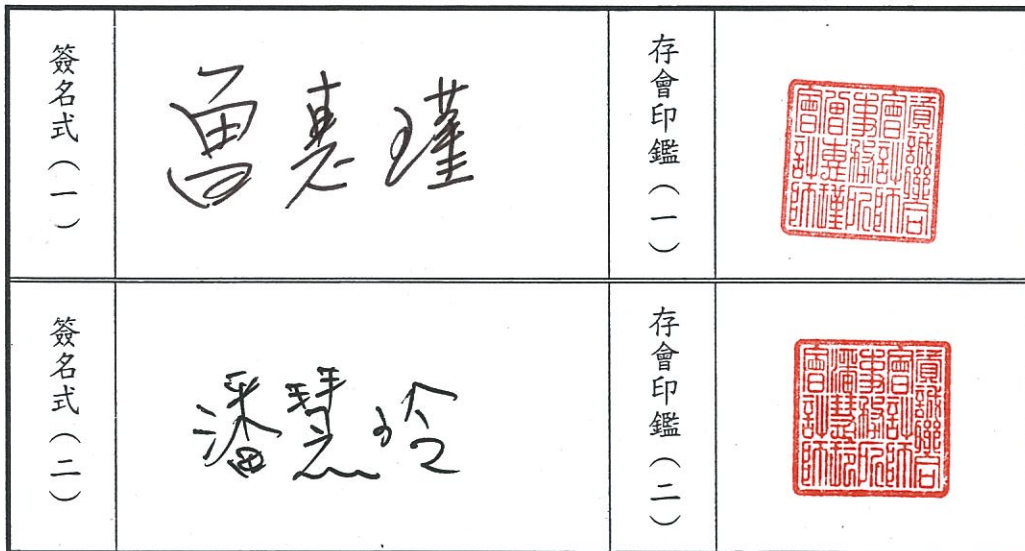 簽名式(一)
曾惠瑾
存會印鑑(一)
資誠聯合
會計師
事務所
曾惠瑾
會計師
簽名式(二)
潘慧玲
存會印鑑(二)
資誠聯合
會計師
事務所
潘慧玲
會計師